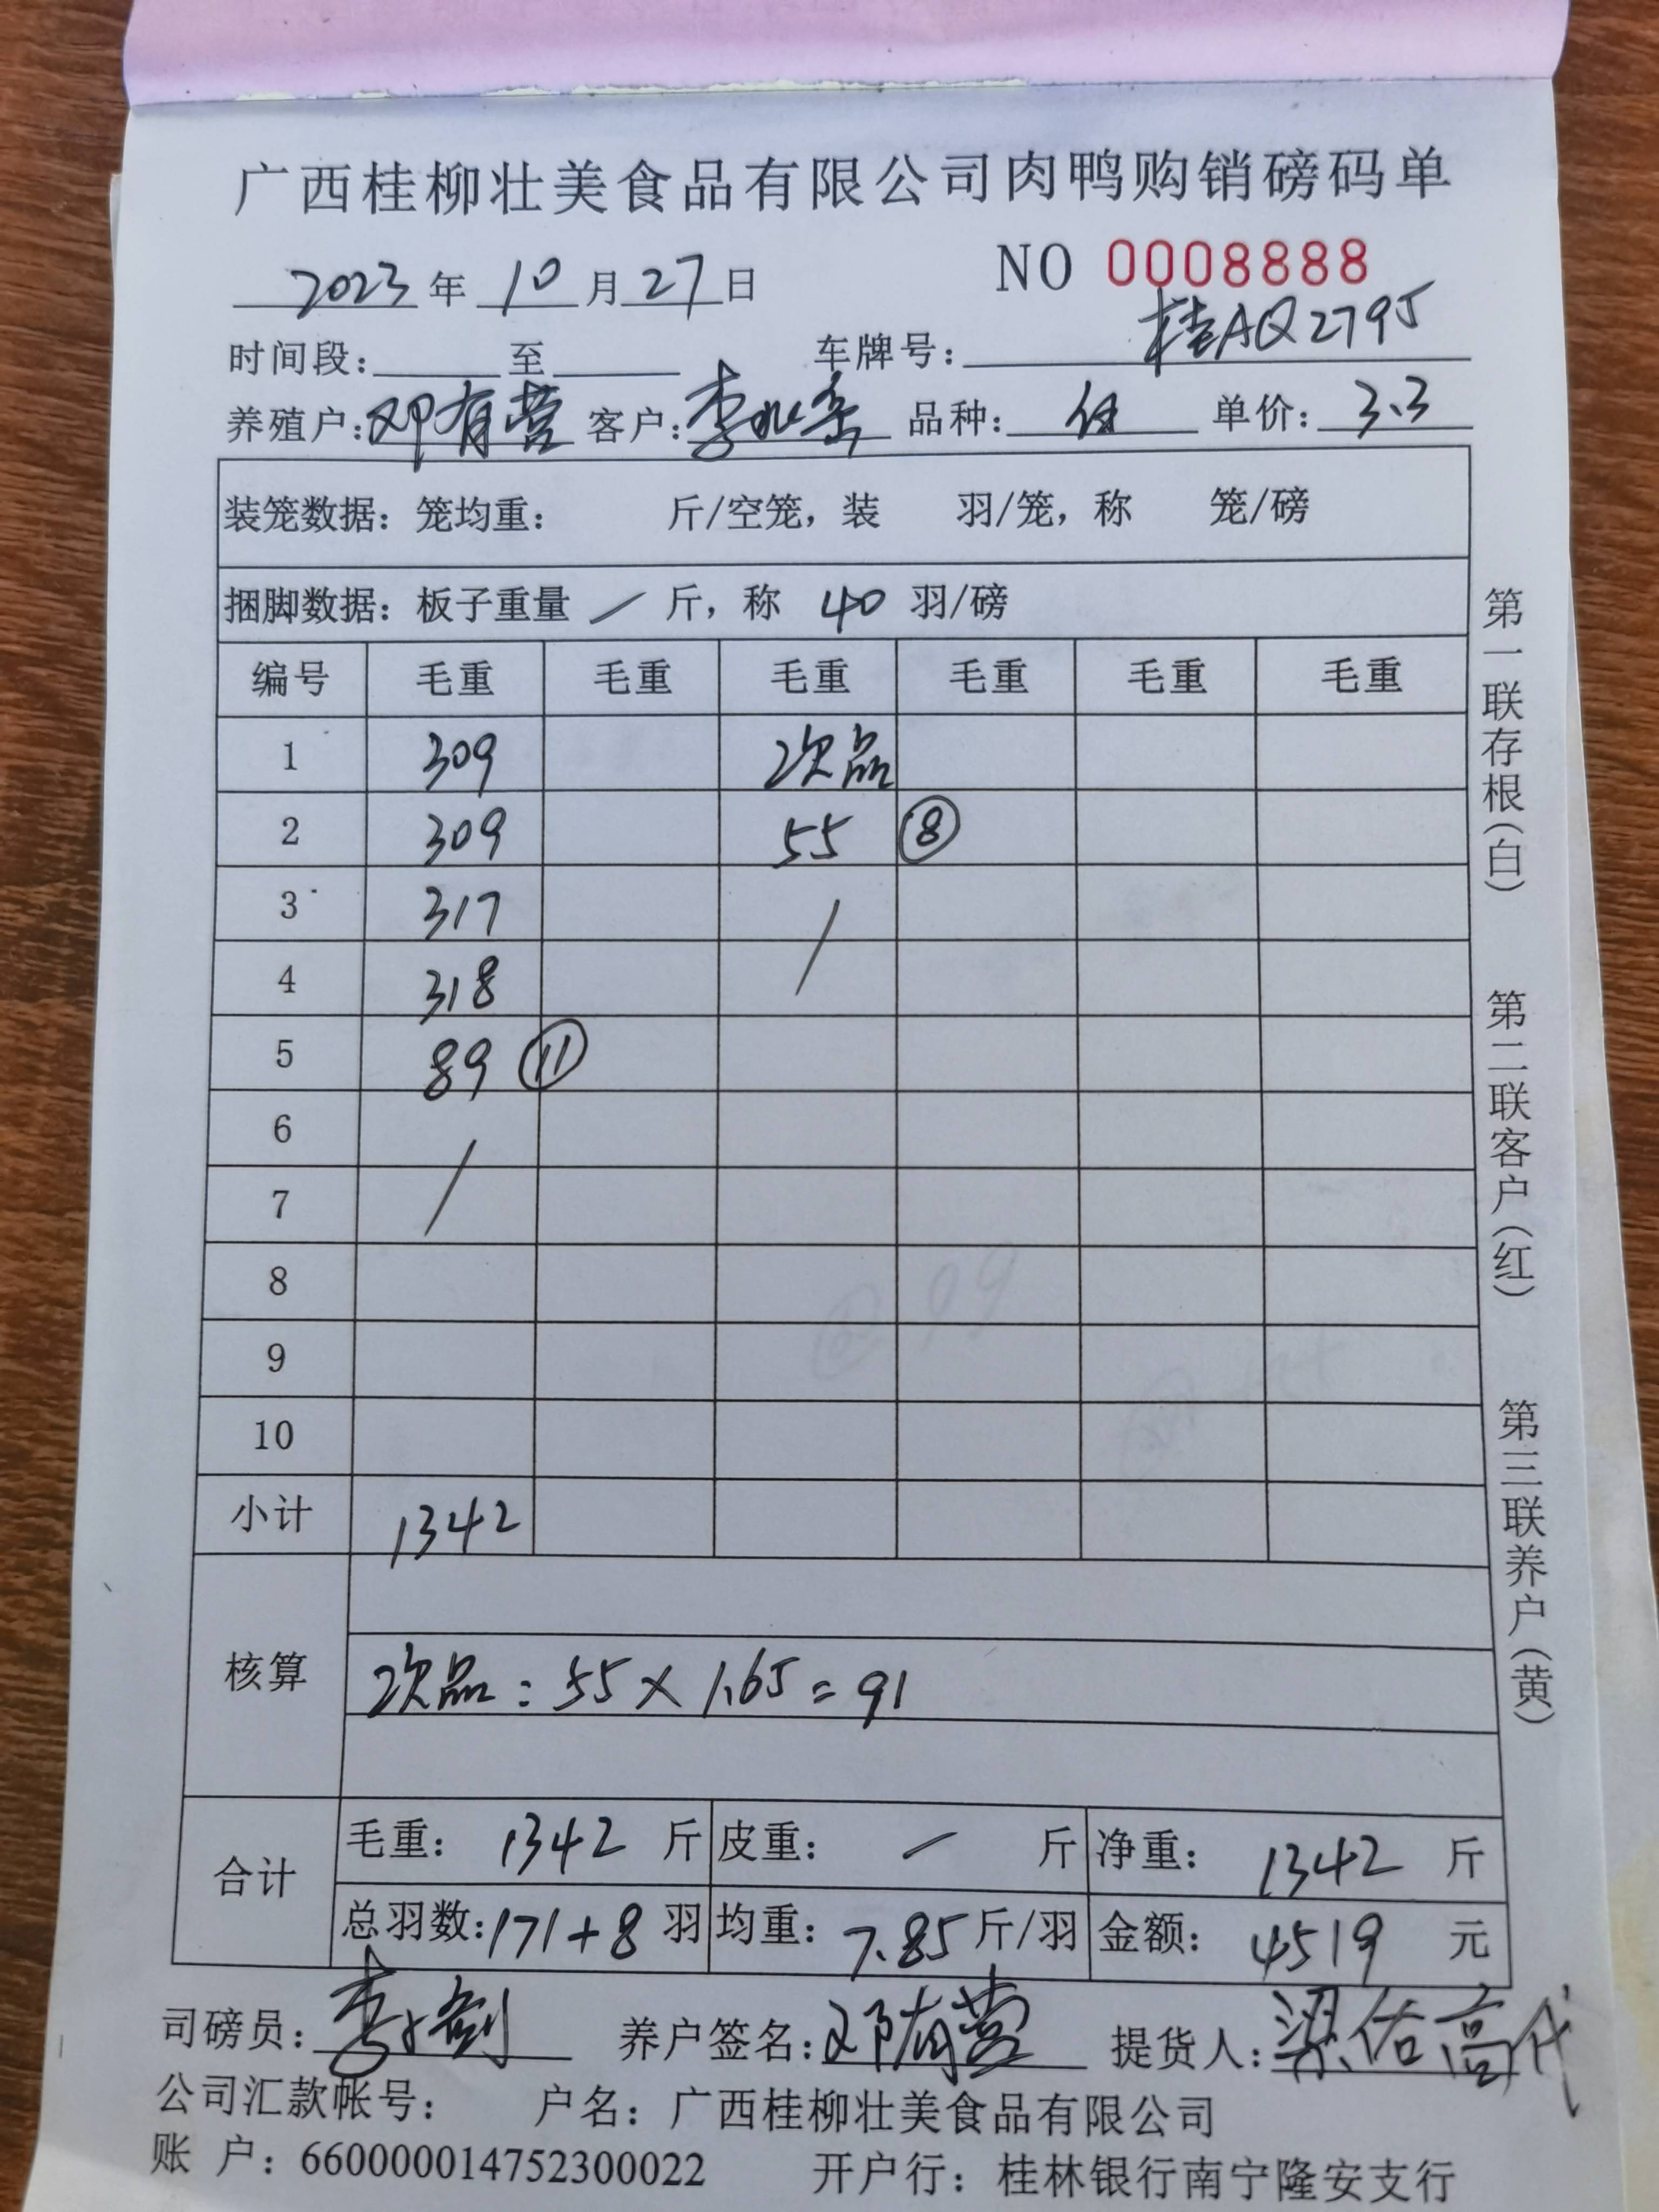 广西桂柳壮美食品有限公司肉鸭购销磅码单
2023年10月27日 NO 0008888
时间段: 至 车牌号: 桂AQ2795
养殖户: 邓有营 客户: 李 品种: 单价: 3.3
装笼数据: 笼均重: 斤/空笼, 装 羽/笼, 称 笼/磅
捆脚数据: 板子重量 / 斤, 称 40 羽/磅
编号 毛重 毛重 毛重 毛重 毛重 毛重
1 309 次品
2 309 55 ⑧
3 317 /
4 318
5 89 ⑪
6 /
7
8
9
10
小计 1342
核算
次品: 55×1.65=91
合计
毛重: 1342 斤 皮重: / 斤 净重: 1342 斤
总羽数: 171+8 羽 均重: 7.85 斤/羽 金额: 4519 元
司磅员: 李 养户签名: 邓有营 提货人: 梁佑高代
公司汇款帐号: 户名: 广西桂柳壮美食品有限公司
账 户: 660000014752300022 开户行: 桂林银行南宁隆安支行
第一联存根(白)
第二联客户(红)
第三联养户(黄)